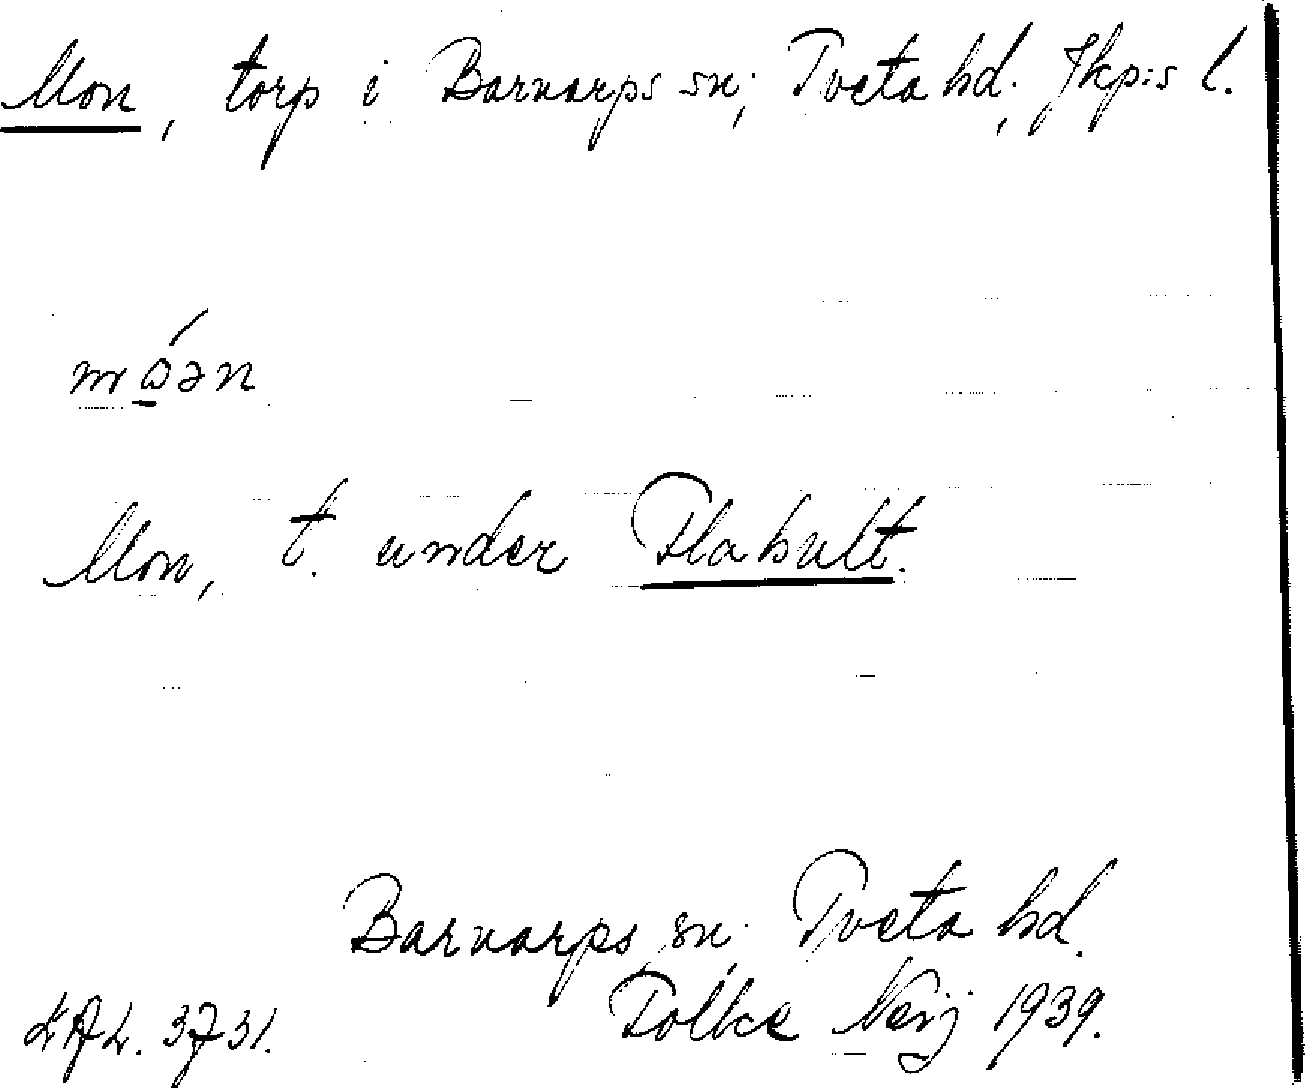 Mon, torp i Barnarps sn, Tveta hd, Jkp:s l.
móən
Mon, t. under Flahult.
Barnarps sn, Tveta hd.
Folke Neij 1939.
LAL. 3731.